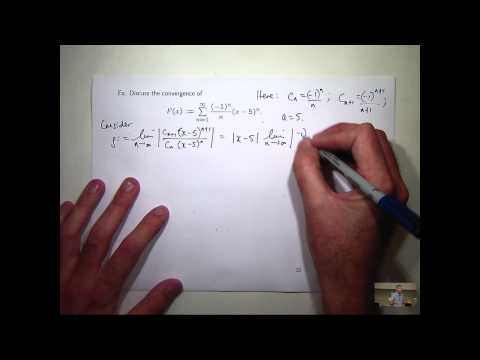 Ex. Discuss the convergence of
P(x) := ∑_{n=1}^{∞} (-1)^n/n (x − 5)^n.
Here: C_n = (-1)^n/n ; C_{n+1} = (-1)^{n+1}/n+1 ;
a = 5.
Consider
:= lim_{n→∞} |C_{n+1}(x-5)^{n+1}/C_n (x-5)^n| = |x-5| lim_{n→∞} |-1)